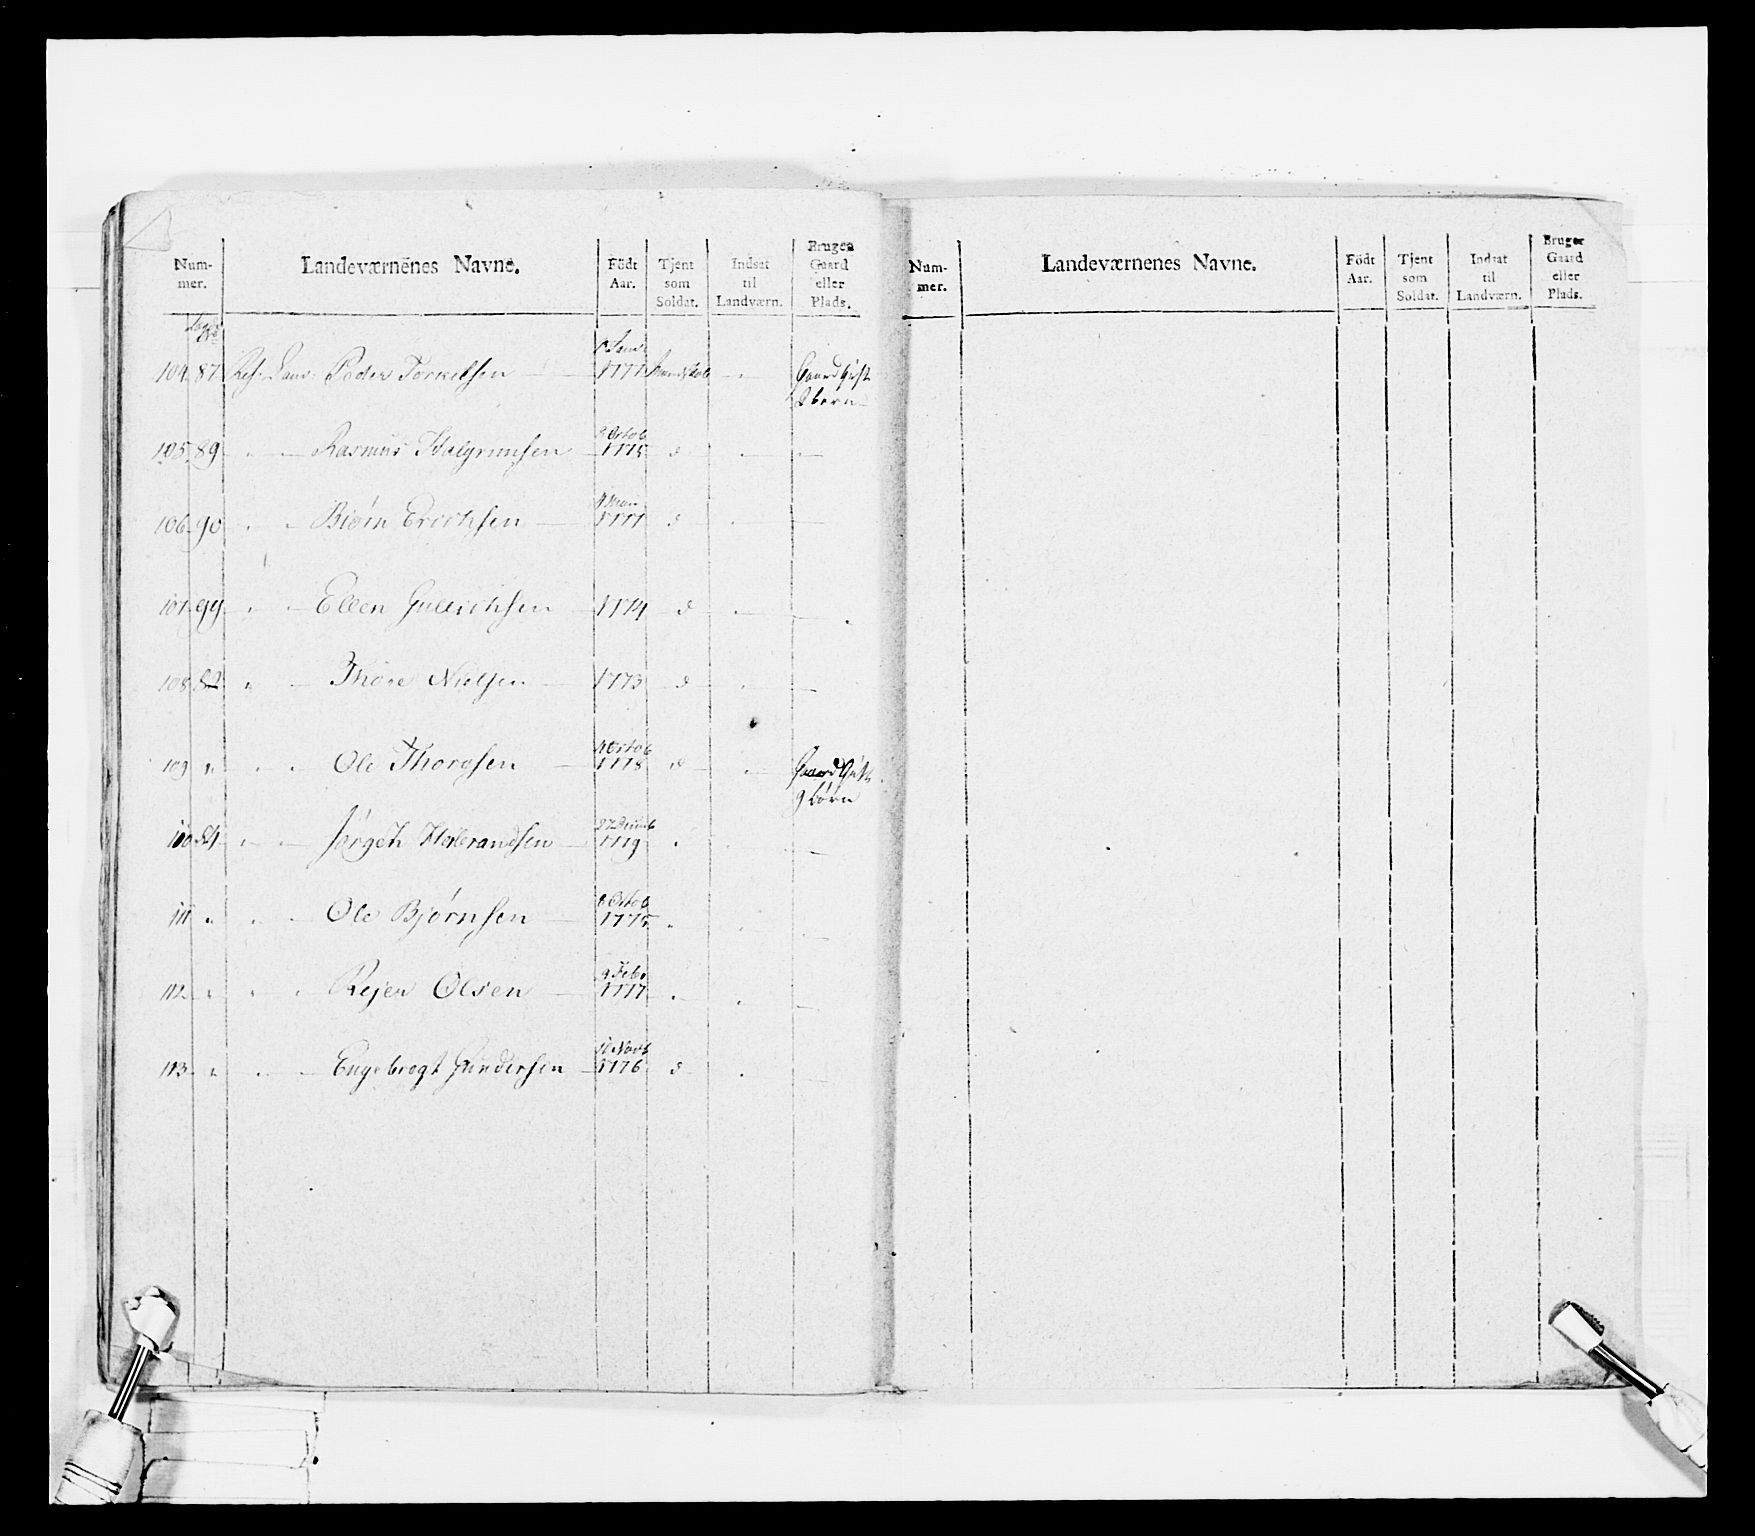 Num-
mer. Landeværnenes Navne. Födt
Aar. Tjent
som
Soldat. Indsat
til
Landværn. Bruger
Gaard
eller
Plads.
104 87 Peder Torkelsen 1777 Gaard Gift
105 89 Rasmus Halgrimsen 8 Octob 1775 d
106 90 Biørn Erichsen 1777 d
107 99 Ellen Gulichsen 1774 d
108 82 Thore Nielsen 1773 d
109 " Ole Thoresen Octob 1778 d Gaard Gift
9 børn
110 84 Jørgen Halvorandsen 27 Decemb 1779
111 " Ole Bjørnsen 8 Octob 1775
112 " Rejer Olsen 9 Feb 1777
113 " Engebregt Gundersen 10 Novb 1776 d
Num-
mer. Landeværnenes Navne. Födt
Aar. Tjent
som
Soldat. Indsat
til
Landværn. Bruger
Gaard
eller
Plads.